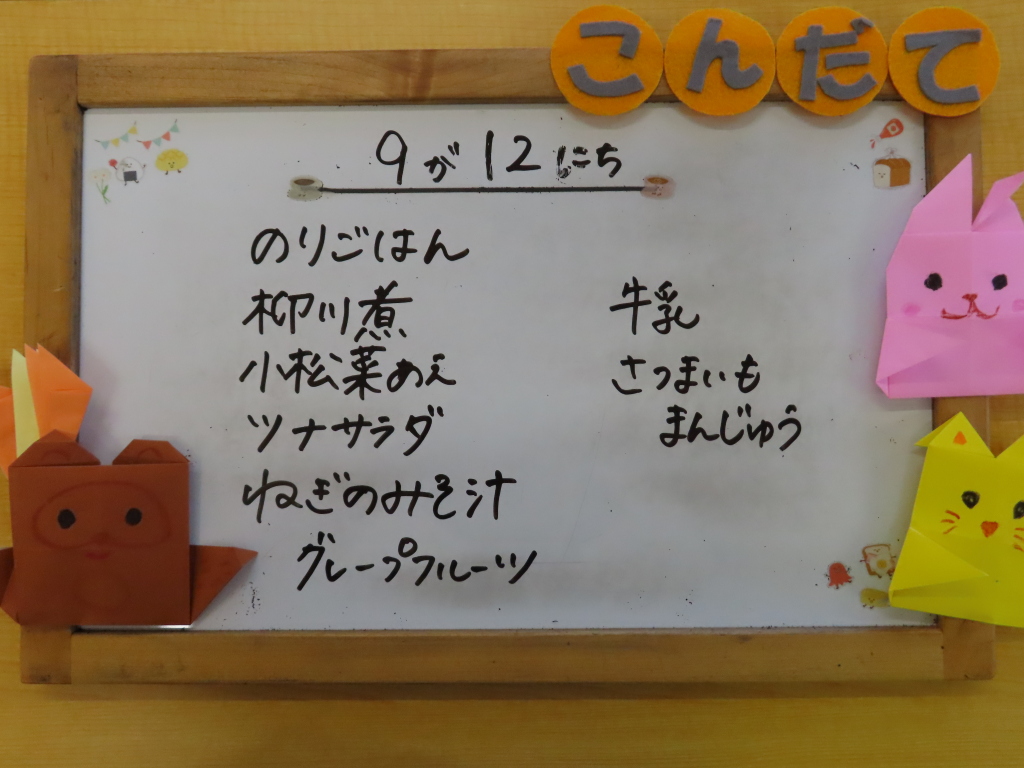 こんだて
9が12にち
のりごはん
柳川煮
小松菜あえ
ツナサラダ
ねぎのみそ汁
グレープフルーツ
牛乳
さつまいも
まんじゅう